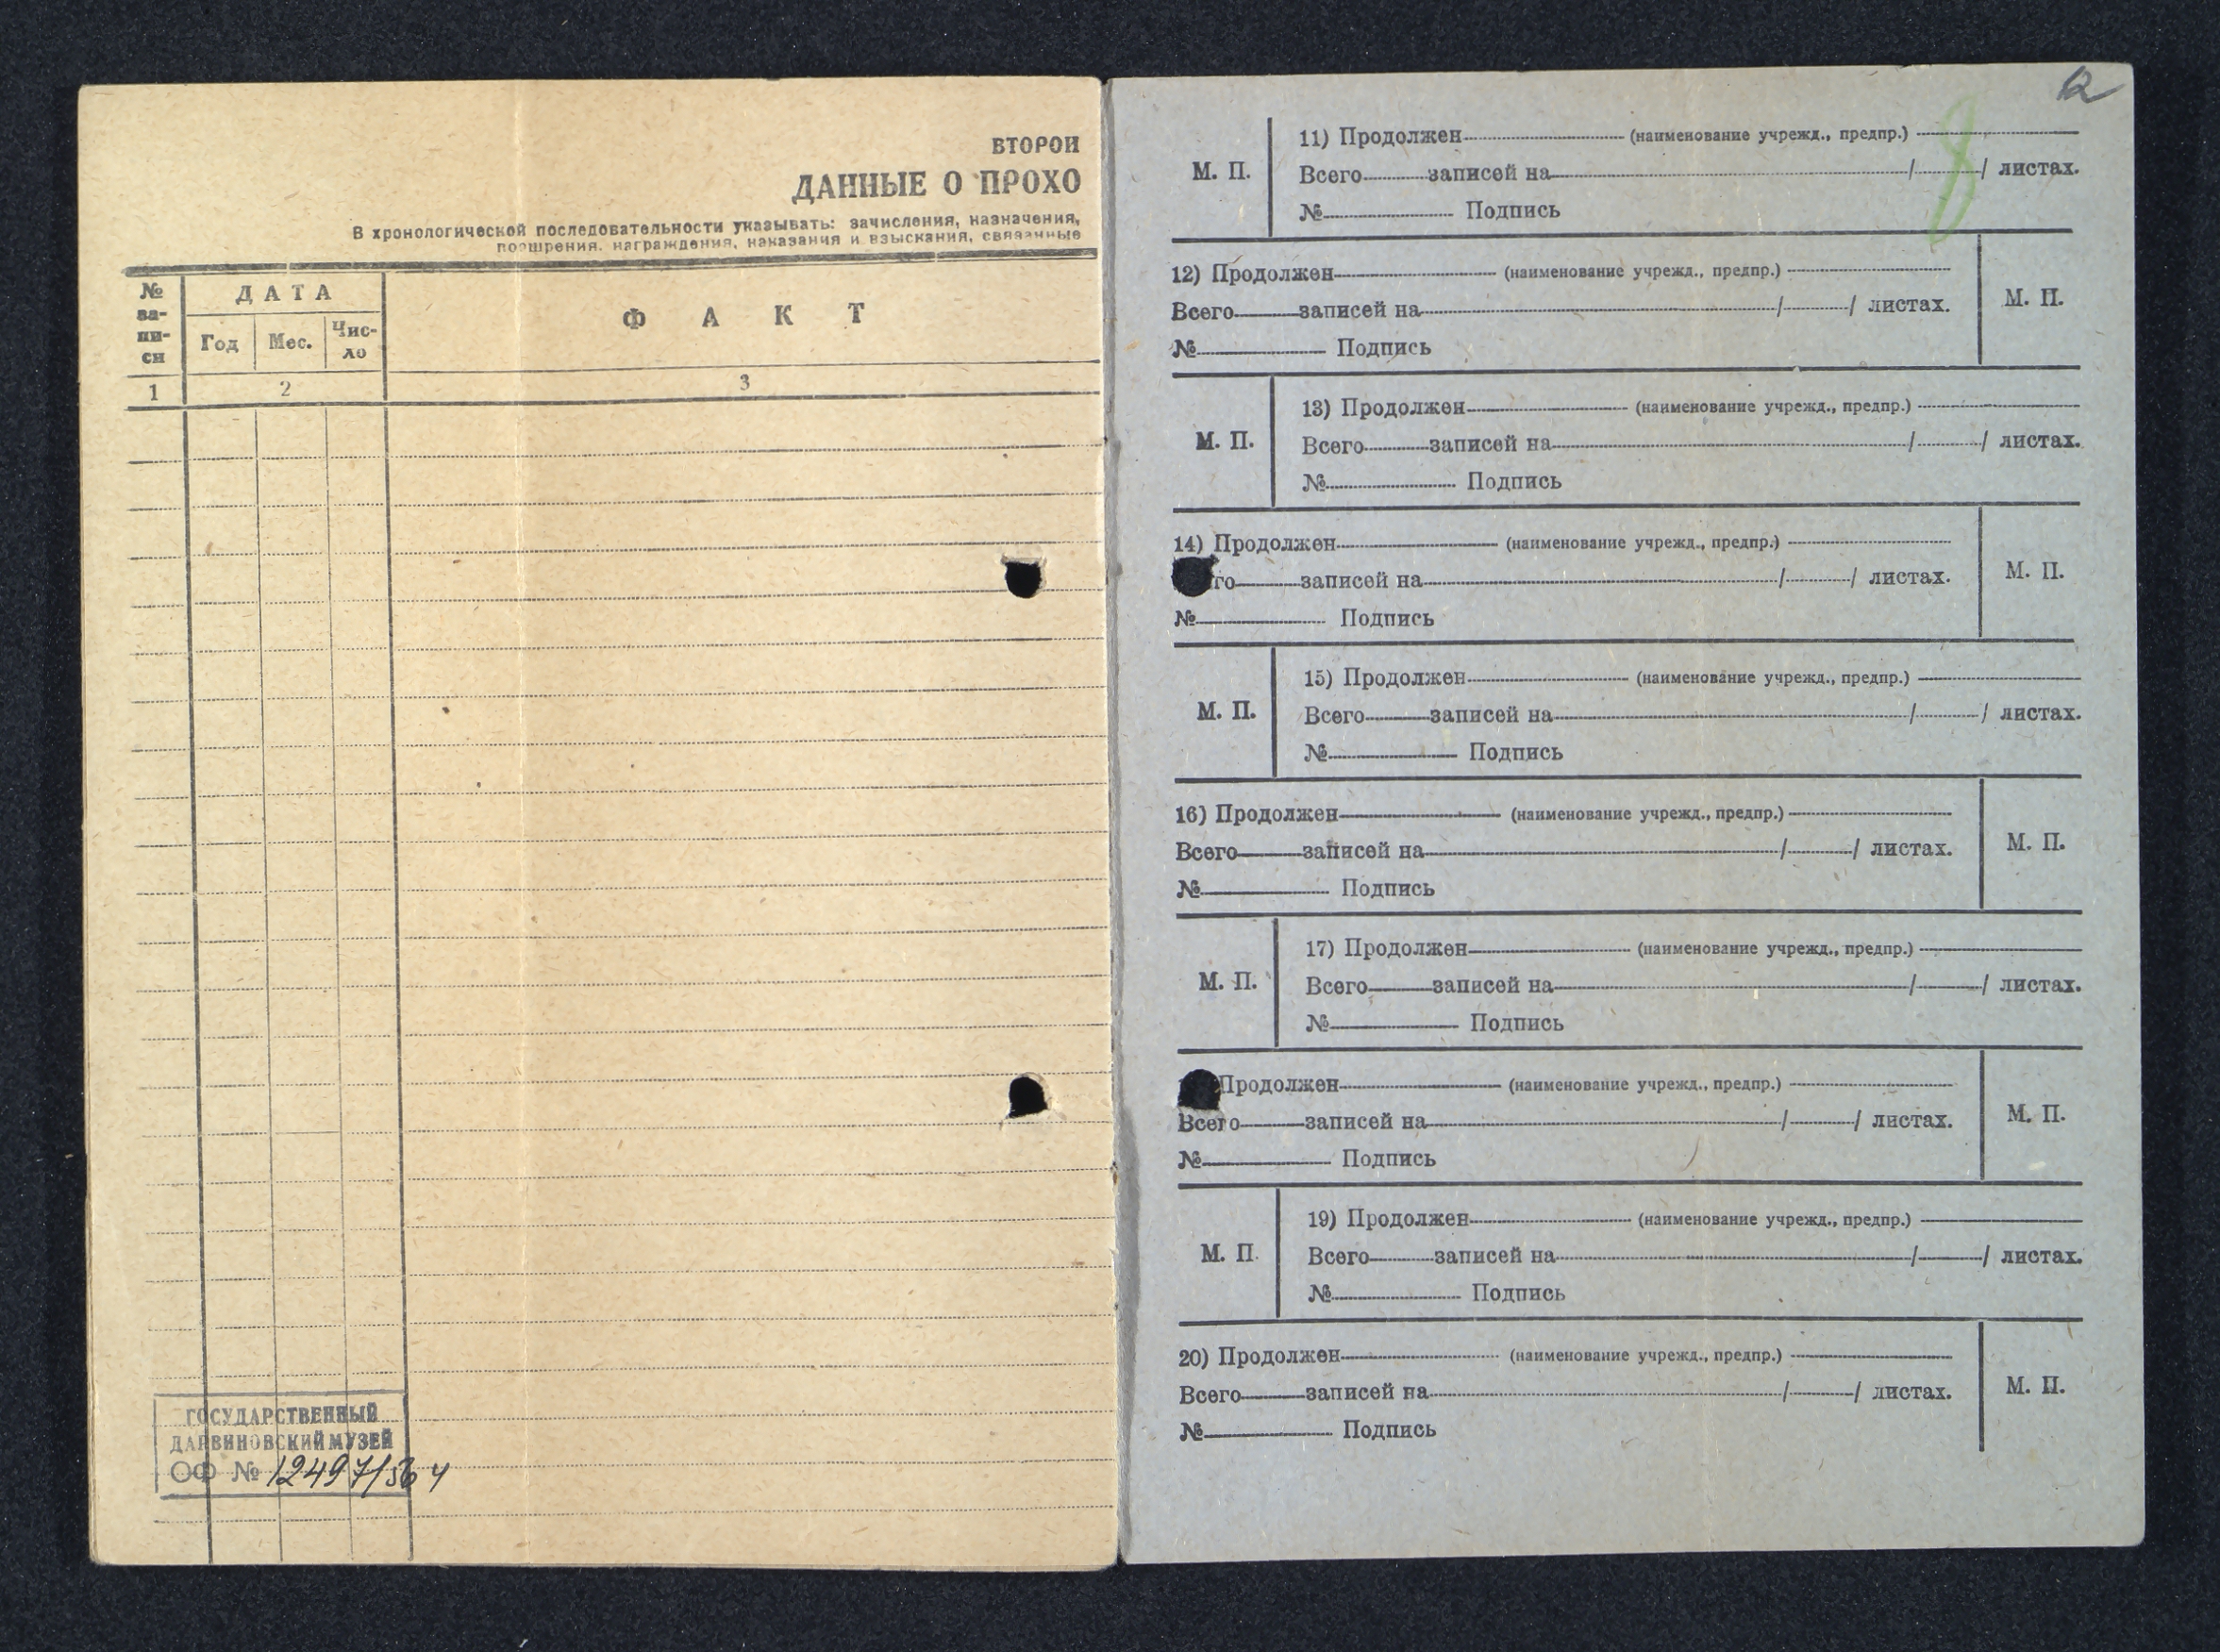 ВТОРОЙ
ДАННЫЕ О ПРОХО
В хронологической последовательности указывать: зачисления, назначения,
поощрения, награждения, наказания и взыскания, связанные
№ за-пи-си
ДАТА
Год Мес. Чис-ло
ФАКТ
1 2 3
ГОСУДАРСТВЕННЫЙ
ДАРВИНОВСКИЙ МУЗЕЙ
ОФ № 12497/564
12
8
11) Продолжен (наименование учрежд., предпр.)
М. П. Всего записей на / / листах.
№ Подпись
12) Продолжен (наименование учрежд., предпр.)
Всего записей на / / листах. М. П.
№ Подпись
13) Продолжен (наименование учрежд., предпр.)
М. П. Всего записей на / / листах.
№ Подпись
14) Продолжен (наименование учрежд., предпр.)
го записей на / / листах. М. П.
№ Подпись
15) Продолжен (наименование учрежд., предпр.)
М. П. Всего записей на / / листах.
№ Подпись
16) Продолжен (наименование учрежд., предпр.)
Всего записей на / / листах. М. П.
№ Подпись
17) Продолжен (наименование учрежд., предпр.)
М. П. Всего записей на / / листах.
№ Подпись
Продолжен (наименование учрежд., предпр.)
Всего записей на / / листах. М. П.
№ Подпись
19) Продолжен (наименование учрежд., предпр.)
М. П. Всего записей на / / листах.
№ Подпись
20) Продолжен (наименование учрежд., предпр.)
Всего записей на / / листах. М. П.
№ Подпись